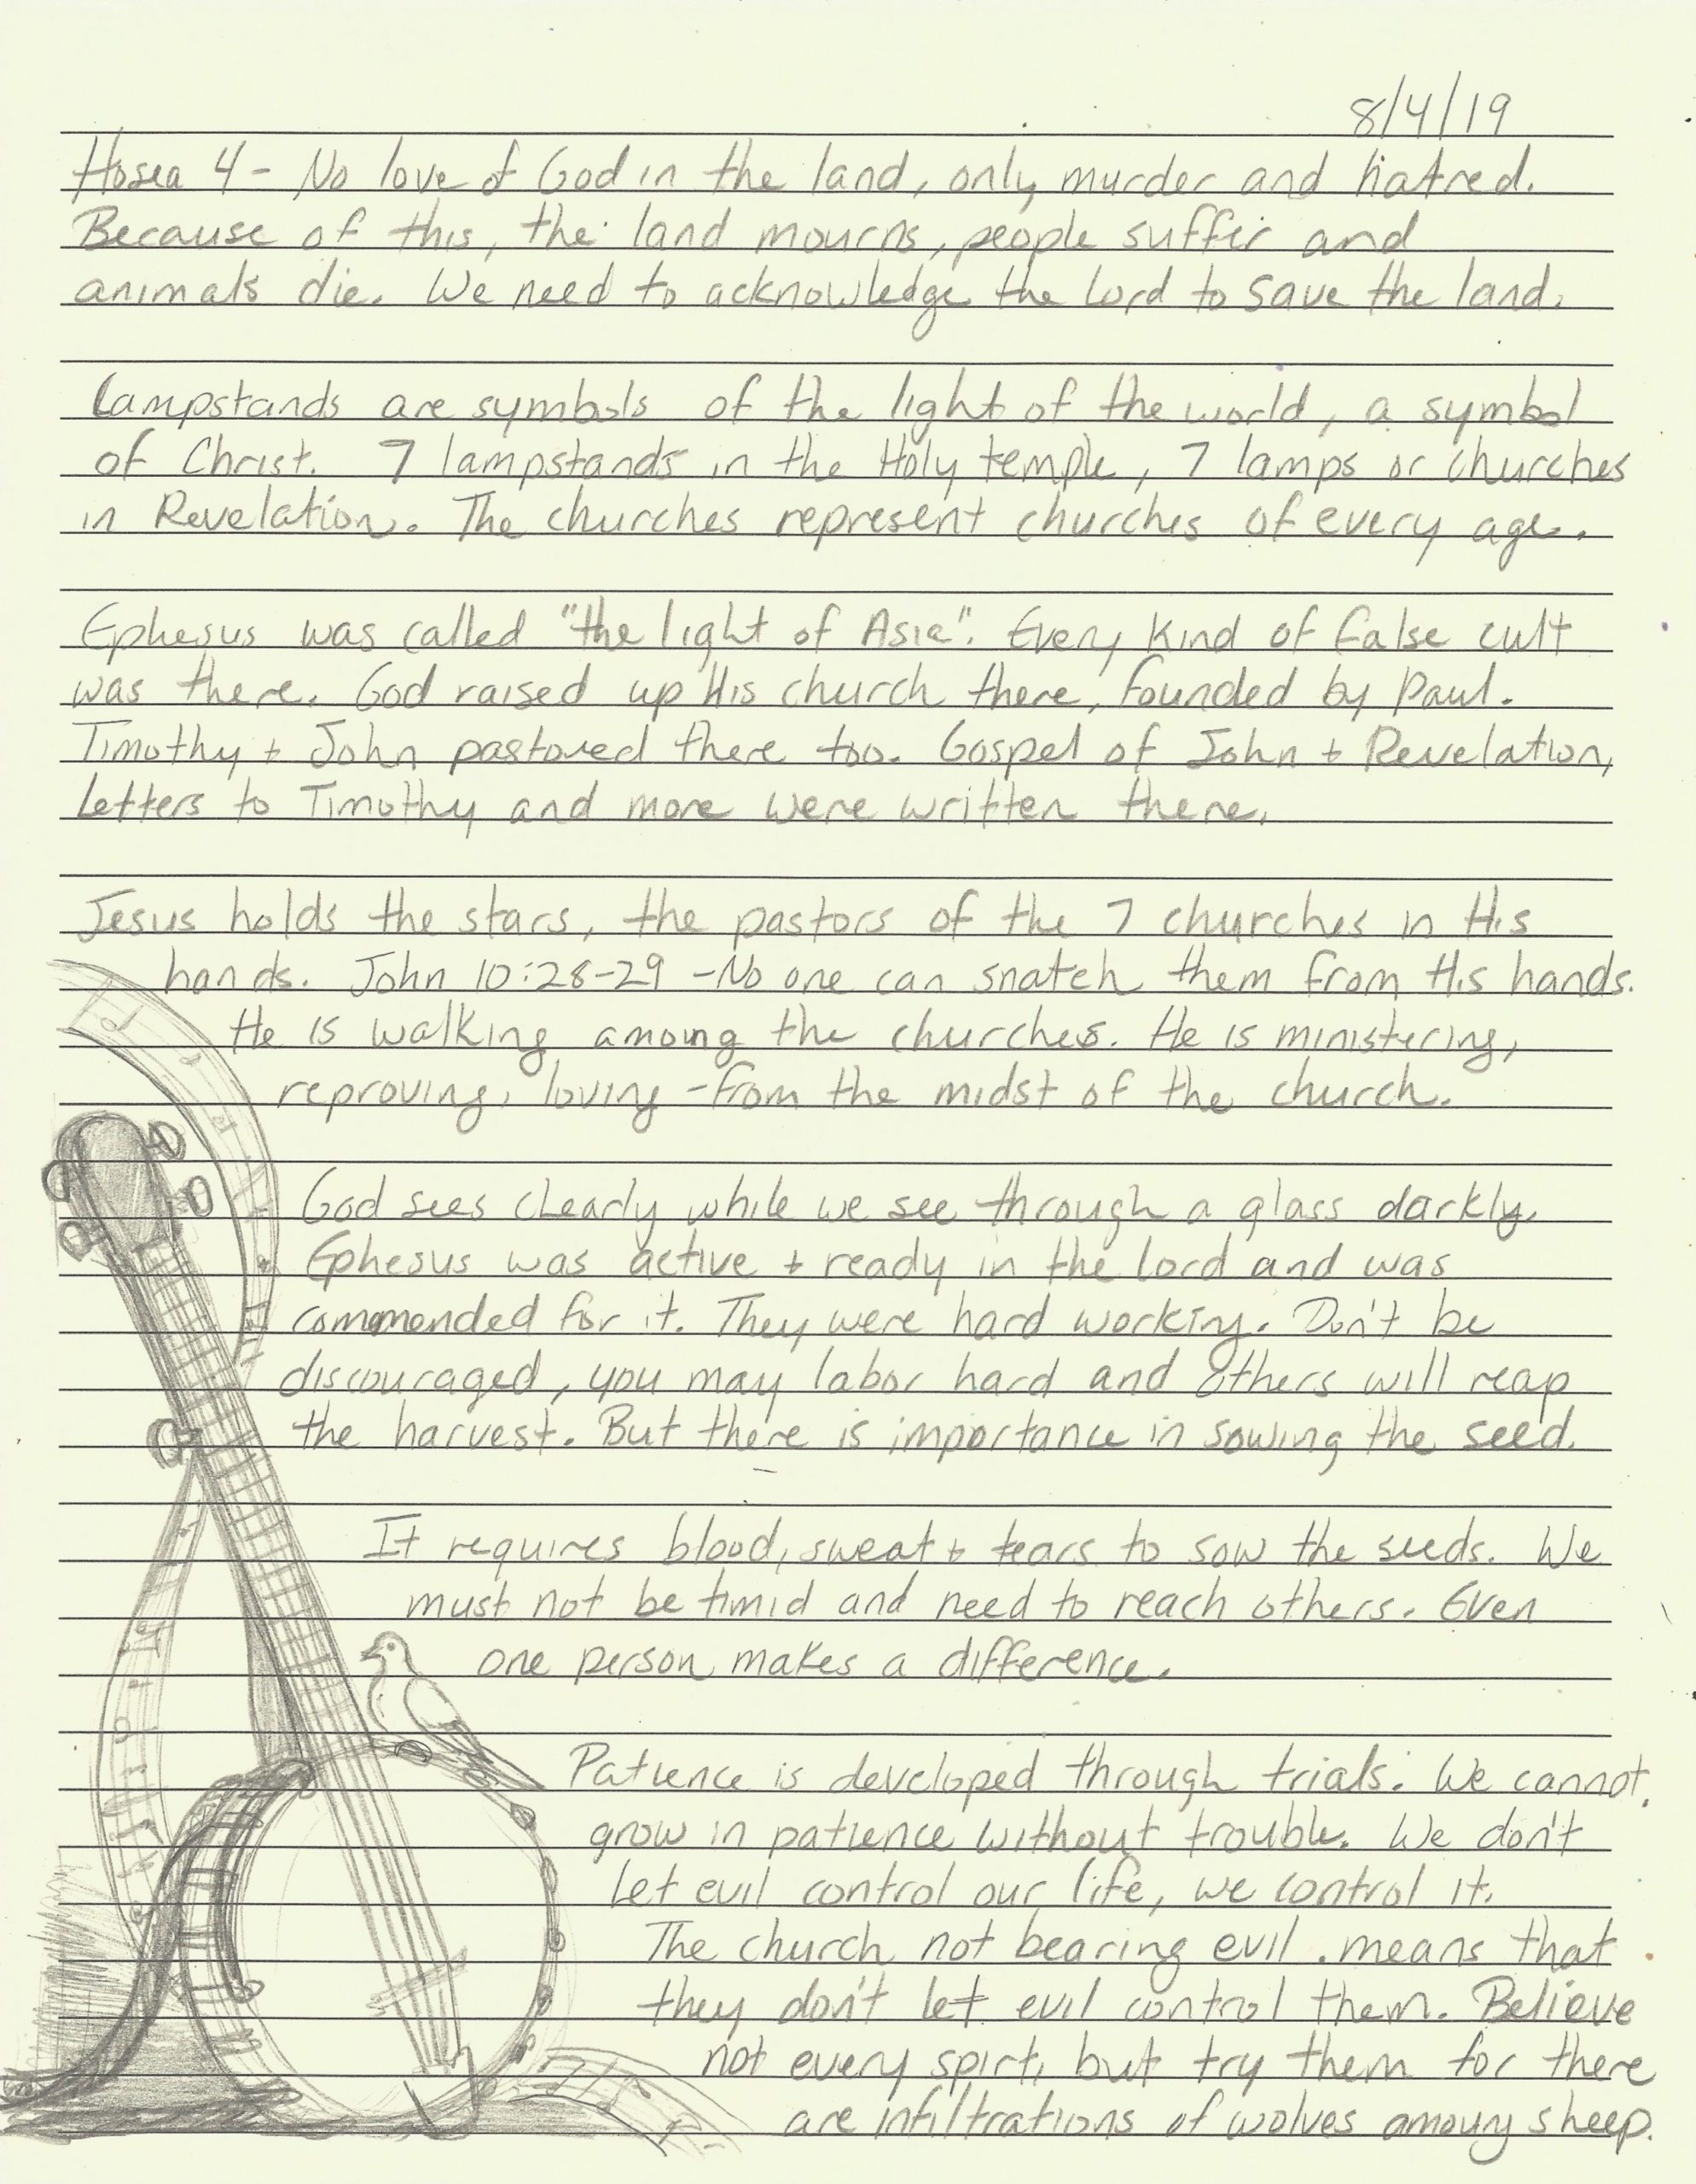 8/4/19
Hosea 4 - No love of God in the land, only murder and hatred.
Because of this, the land mourns, people suffer and
animals die. We need to acknowledge the Lord to save the land.
Lampstands are symbols of the light of the world, a symbol
of Christ. 7 lampstands in the Holy temple, 7 lamps or churches
in Revelation. The churches represent churches of every age.
Ephesus was called "the light of Asia". Every kind of false cult
was there. God raised up His church there, founded by Paul.
Timothy + John pastored there too. Gospel of John + Revelation,
Letters to Timothy and more were written there.
Jesus holds the stars, the pastors of the 7 churches in His
hands. John 10:28-29 - No one can snatch them from His hands.
He is walking among the churches. He is ministering,
reproving, loving - from the midst of the church.
God sees clearly while we see through a glass darkly.
Ephesus was active + ready in the Lord and was
commended for it. They were hard working. Don't be
discouraged, you may labor hard and others will reap
the harvest. But there is importance in sowing the seed.
It requires blood, sweat + tears to sow the seeds. We
must not be timid and need to reach others. Even
one person makes a difference.
Patience is developed through trials. We cannot
grow in patience without trouble. We don't
let evil control our life, we control it.
The church not bearing evil means that
they don't let evil control them. Believe
not every spirt, but try them for there
are infiltrations of wolves amoung sheep.